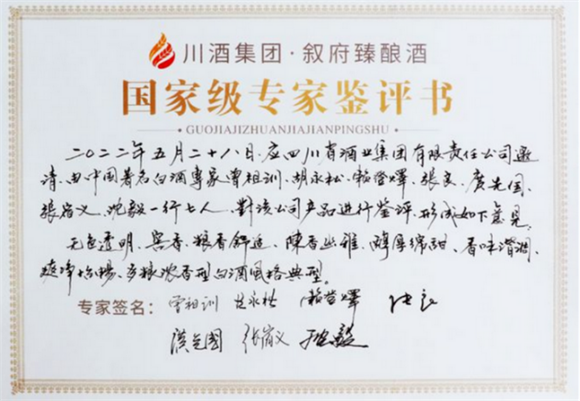 川酒集团·叙府臻酿酒
国家级专家鉴评书
GUOJIAJIZHUANJIAJIANPINGSHU
二〇二二年五月二十八日,应四川省酒业集团有限责任公司邀
请,由中国著名白酒专家曾祖训、胡永松、赖登燡、张良、唐先国、
张宿义、沈毅一行七人,對該公司产品进行鉴评,形成如下意见:
无色透明、窖香、粮香舒适、陳香幽雅、醇厚绵甜、香味谐调、
爽净怡畅、多粮浓香型白酒风格典型。
专家签名:曾祖训 胡永松 赖登燡 张良
张宿义 沈毅